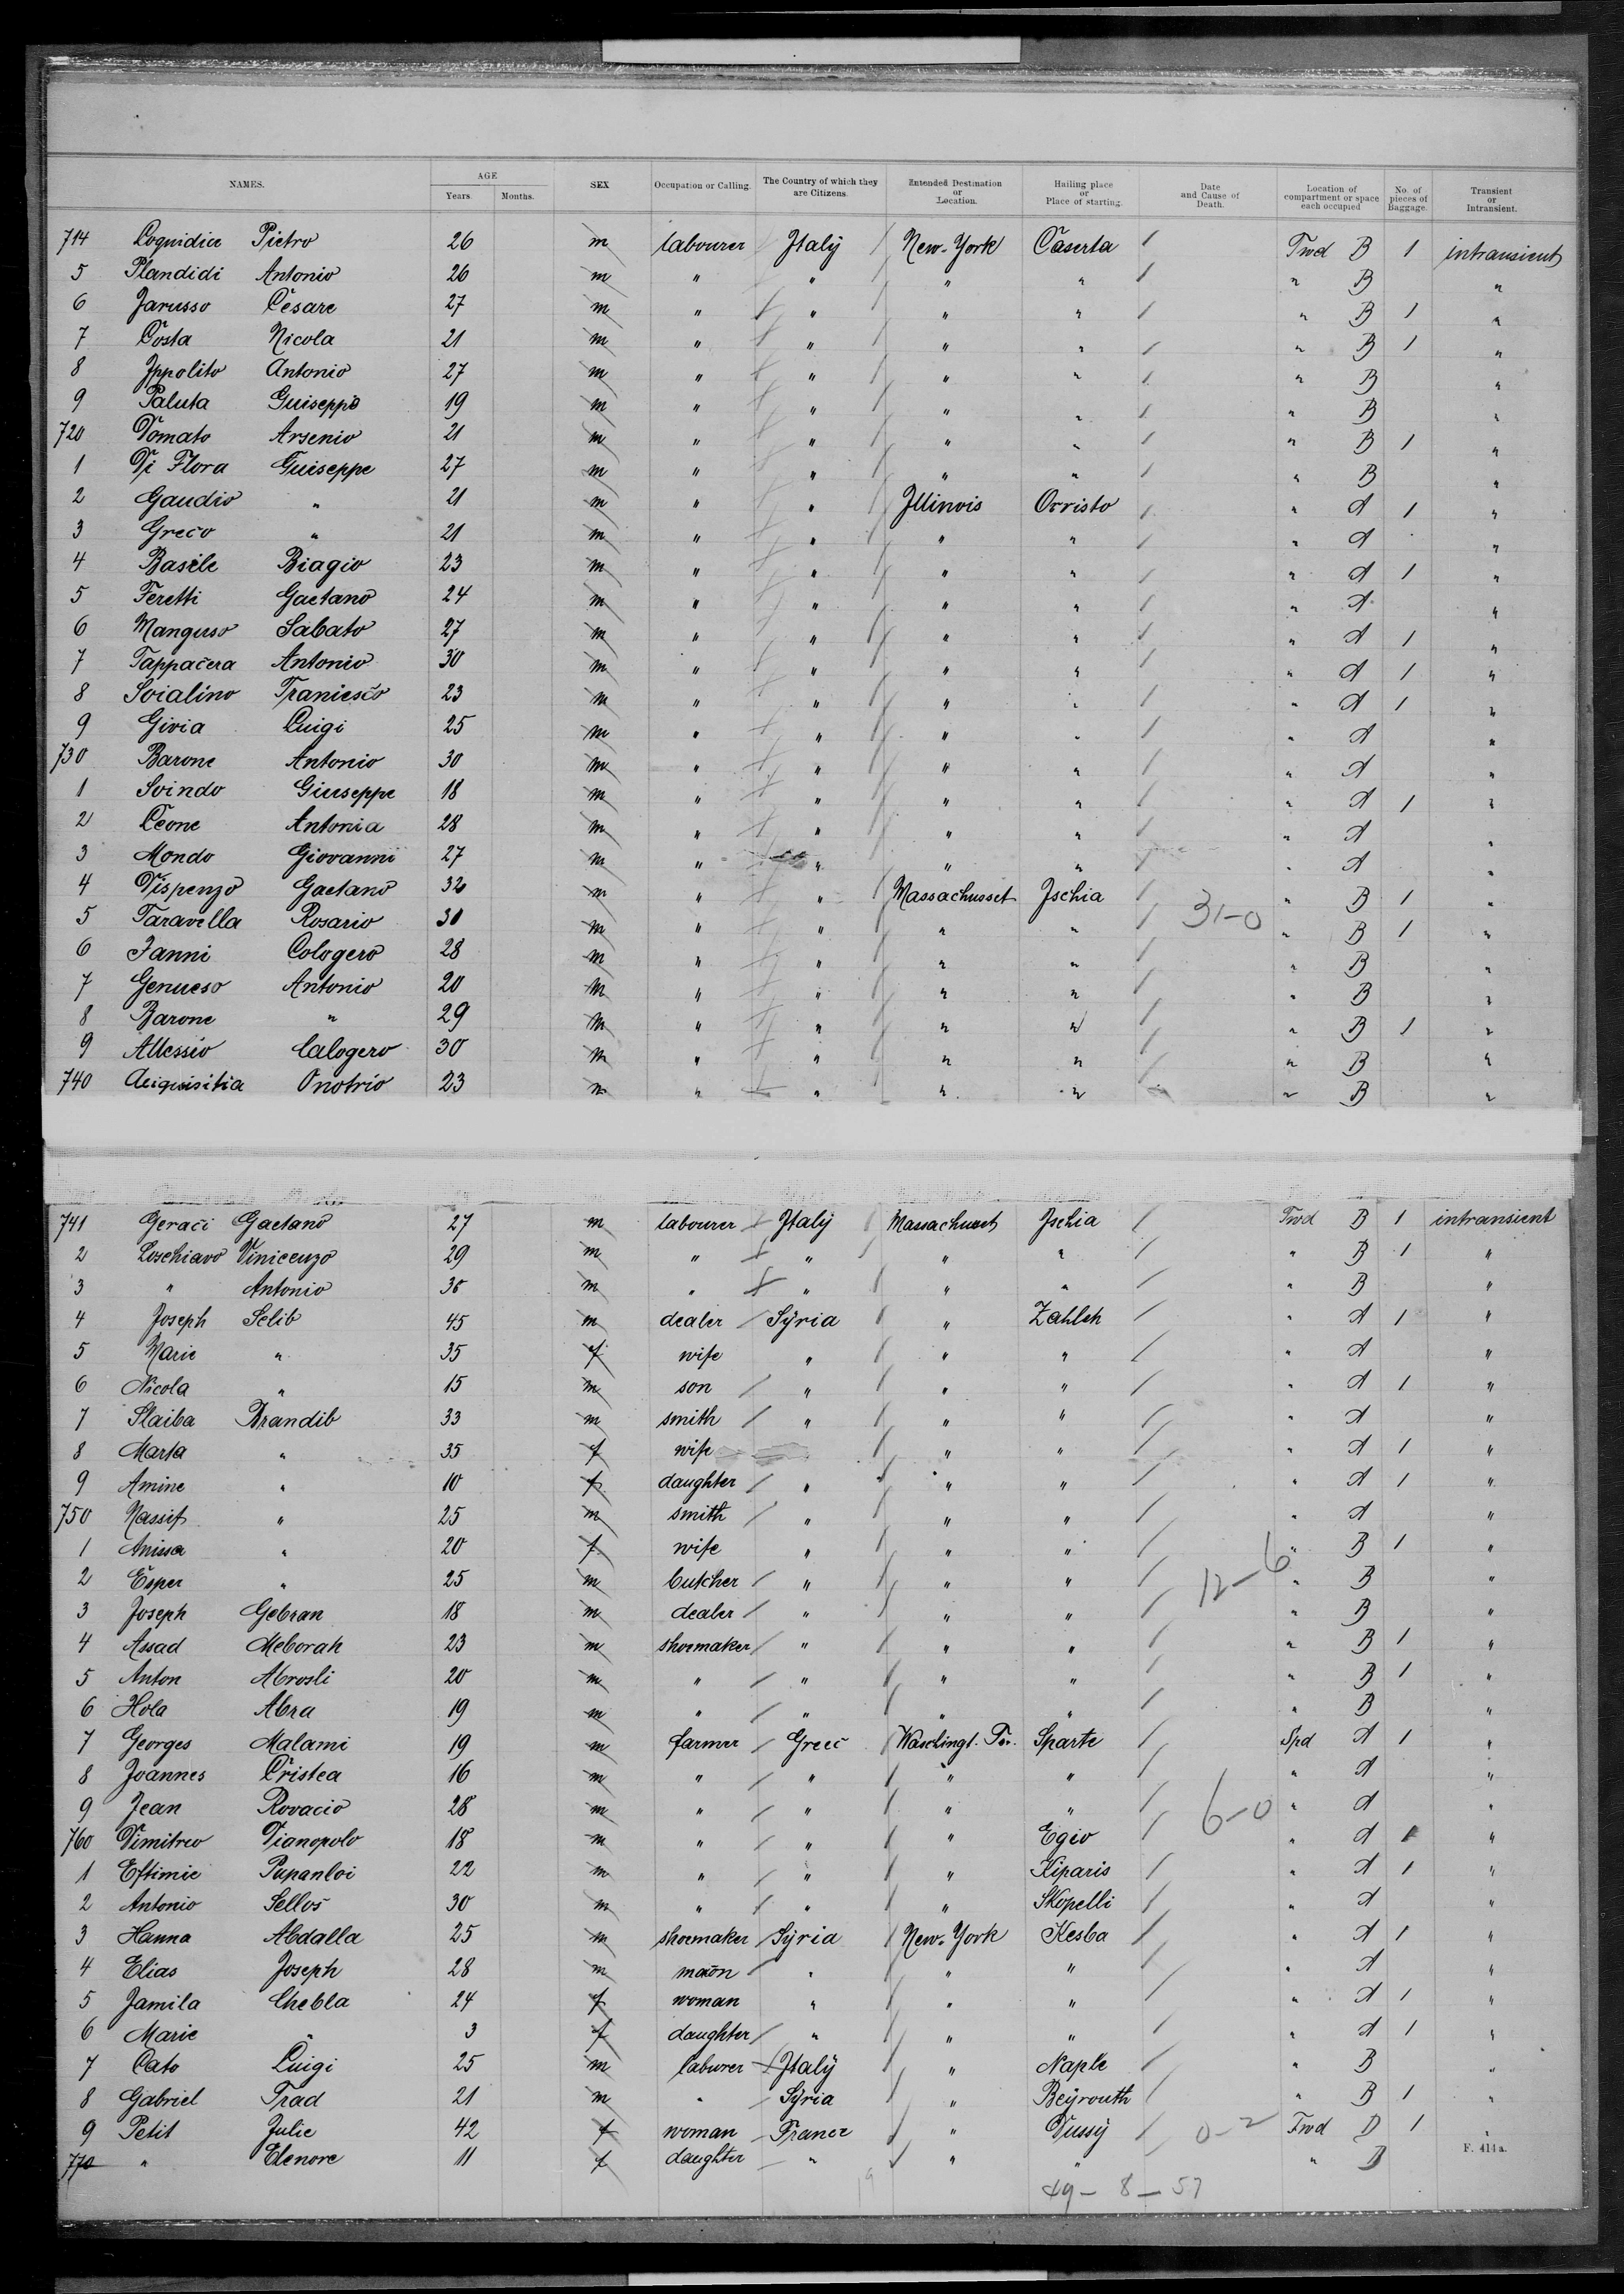 NAMES. AGE Years. Months. SEX Occupation or Calling. The Country of which they are Citizens. Intended Destination or Location. Hailing place or Place of starting. Date and Cause of Death. Location of compartment or space each occupied No. of pieces of Baggage. Transient or Intransient.
714 Loquidia Pietro 26 m labourer Italy New-York Caserta Fwd B 1 intransient
5 Plandidi Antonio 26 m " " " " " B "
6 Jarusso Cesare 27 m " " " " " B 1 "
7 Costa Nicola 21 m " " " " " B 1 "
8 Ippolito Antonio 27 m " " " " " B "
9 Paluta Guiseppe 19 m " " " " " B "
720 Domato Arsenio 21 m " " " " " B 1 "
1 Di Flora Guiseppe 27 m " " " " " B "
2 Gaudio " 21 m " " Illinois Orristo " A 1 "
3 Greco " 21 m " " " " " A "
4 Basile Biagio 23 m " " " " " A 1 "
5 Feretti Gaetano 24 m " " " " " A "
6 Manguso Sabato 27 m " " " " " A 1 "
7 Tappacera Antonio 30 m " " " " " A 1 "
8 Soialino Franiesco 23 m " " " " " A 1 "
9 Givia Luigi 25 m " " " " " A "
730 Barone Antonio 30 m " " " " " A "
1 Soindo Giuseppe 18 m " " " " " A 1 "
2 Leone Antonia 28 m " " " " " A "
3 Mondo Giovanni 27 m " " " " " A "
4 Dispenzo Gaetano 32 m " " Massachusset Ischia " B 1 "
5 Taravella Rosario 30 m " " " " 31-0 " B 1 "
6 Fanni Cologero 28 m " " " " " B "
7 Genueso Antonio 20 m " " " " " B "
8 Barone " 29 m " " " " " B 1 "
9 Allessio Calogero 30 m " " " " " B "
740 Aciquisitia Onotrio 23 m " " " " " B "
741 Geraci Gaetano 27 m labourer Italy Massachuset Ischia Fwd B 1 intransient
2 Loschiavo Vinicenzo 29 m " " " " " B 1 "
3 " Antonio 36 m " " " " " B "
4 Joseph Selib 45 m dealer Syria " Zahleh " A 1 "
5 Marie " 35 f wife " " " " A "
6 Nicola " 15 m son " " " " A 1 "
7 Slaiba Brandib 33 m smith " " " " A "
8 Marta " 35 f wife " " " A 1 "
9 Amine " 10 f daughter " " " " A 1 "
750 Nassif " 25 m smith " " " " A "
1 Anissa " 20 f wife " " " " B 1 "
2 Esper " 25 m butcher " " " 12-6 " B "
3 Joseph Gebran 18 m dealer " " " " B "
4 Assad Meborah 23 m shoemaker " " " " B 1 "
5 Anton Abrosli 20 m " " " " " B 1 "
6 Hola Abra 19 m " " " " " B "
7 Georges Malami 19 m farmer Greec Waschingt. Sparte Spd A 1 "
8 Joannes Cristea 16 m " " " " " A "
9 Jean Rovacio 28 m " " " " 6-0 " A "
760 Dimitreo Dianopolo 18 m " " " Egio " A 1 "
1 Eftimie Papanloi 22 m " " " Kiparis " A 1 "
2 Antonio Sellos 30 m " " " Skopelli " A "
3 Hanna Abdalla 25 m shoemaker Syria New-York Kesba " A 1 "
4 Elias Joseph 28 m maçon " " " " A "
5 Jamila Chebla 24 f woman " " " " A 1 "
6 Marie " 3 f daughter " " " " A 1 "
7 Cato Luigi 25 m laburer Italy " Naple " B "
8 Gabriel Trad 21 m " Syria " Beyrouth " B 1 "
9 Petit Julie 42 f woman France " Dussy 0-2 Fwd D 1 "
770 " Elenore 11 f daughter " " " " D
F. 414a.
49-8-57